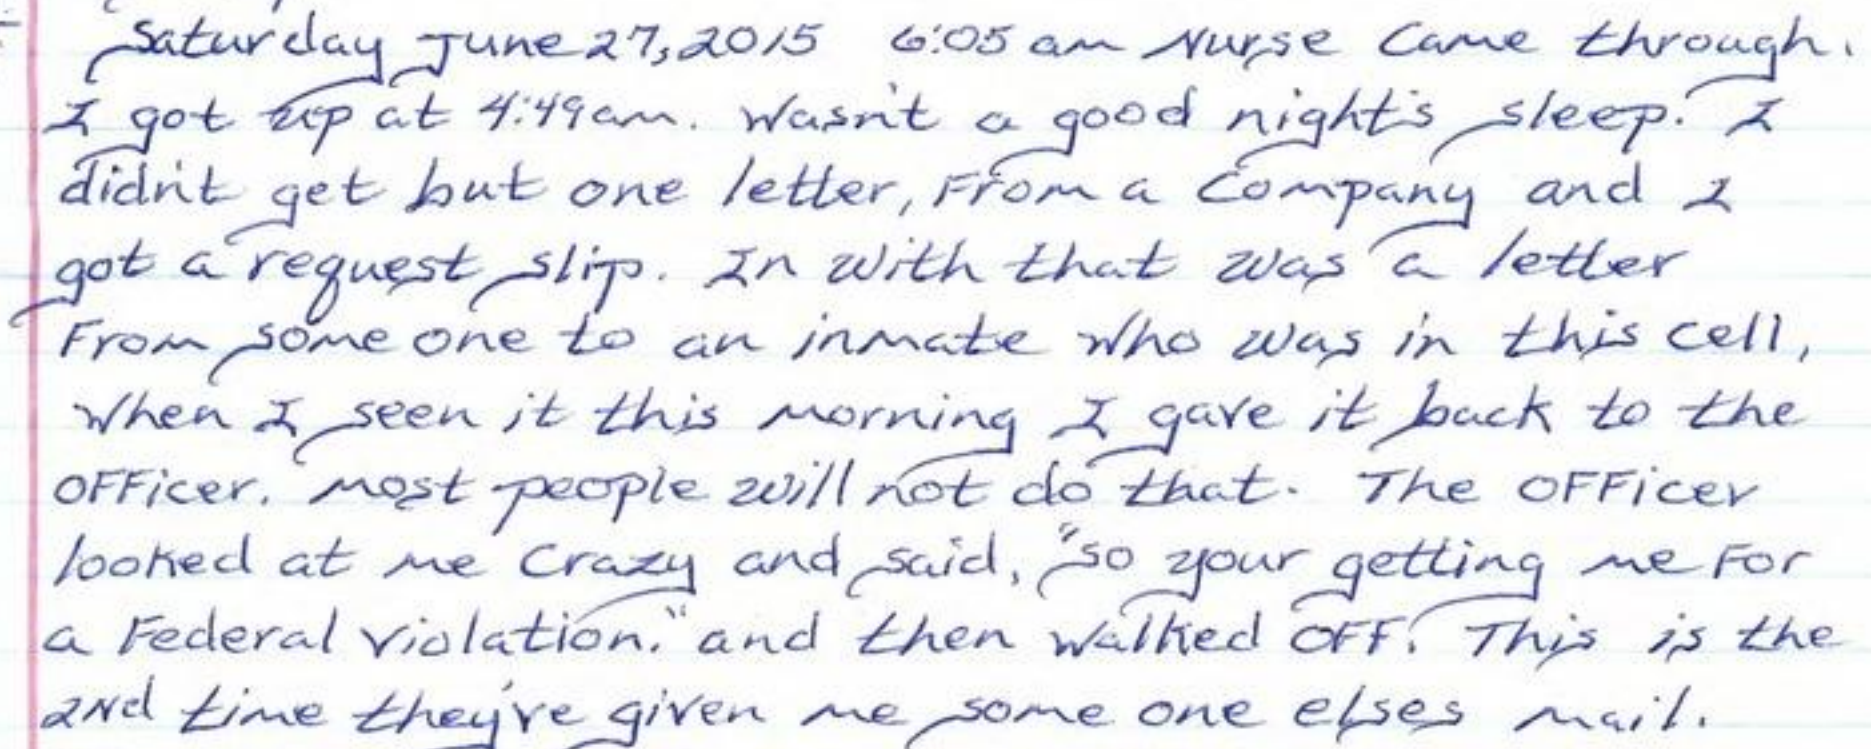 Saturday June 27, 2015 6:05 am Nurse Came through.
I got up at 4:49am. Wasn't a good night's sleep. I
didn't get but one letter, From a Company and I
got a request slip. In with that was a letter
From some one to an inmate who was in this cell,
When I seen it this morning I gave it back to the
OFFicer. Most people will not do that. The OFFicer
looked at me Crazy and said, "so your getting me For
a Federal violation." and then walked OFF. This is the
2nd time they've given me some one elses mail.